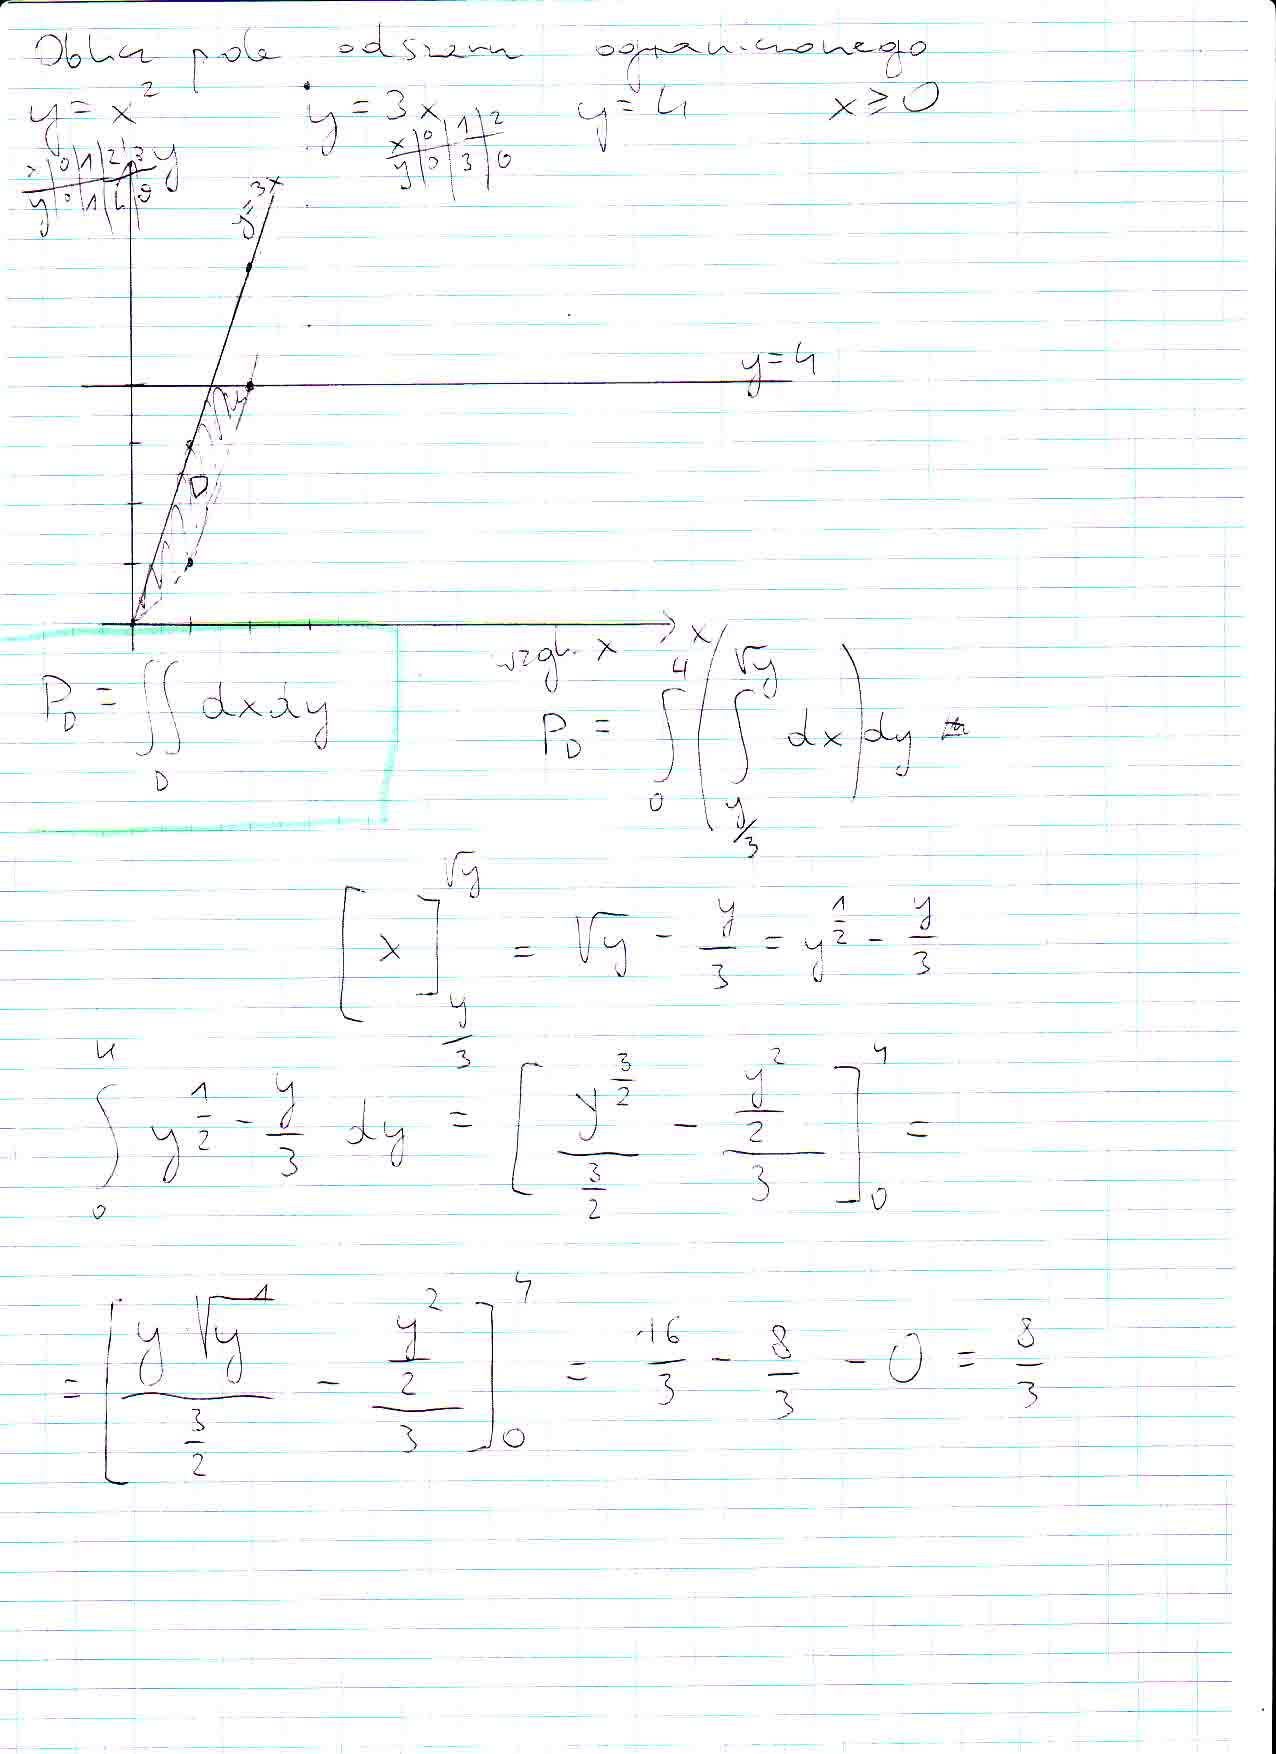 Oblicz pole obszaru ograniczonego
y = x² y = 3x y = 4 x ≥ 0
x | 0 | 1 | 2 | 3 y
y | 0 | 1 | 4 | 9
x | 0 | 1 | 2
y | 0 | 3 | 6
y=3x
y=4
D
x
P_D = ∬_D dxdy
wzgl. x
P_D = ∫_0^4 ( ∫_{y/3}^{√y} dx ) dy
[x]_{y/3}^{√y} = √y - y/3 = y^{1/2} - y/3
∫_0^4 y^{1/2} - y/3 dy = [ y^{3/2}/(3/2) - (y²/2)/3 ]_0^4 =
= [ y√y^1/(3/2) - (y²/2)/3 ]_0^4 = 16/3 - 8/3 - 0 = 8/3